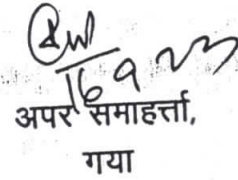 16 9 23
अपर समाहर्त्ता,
गया